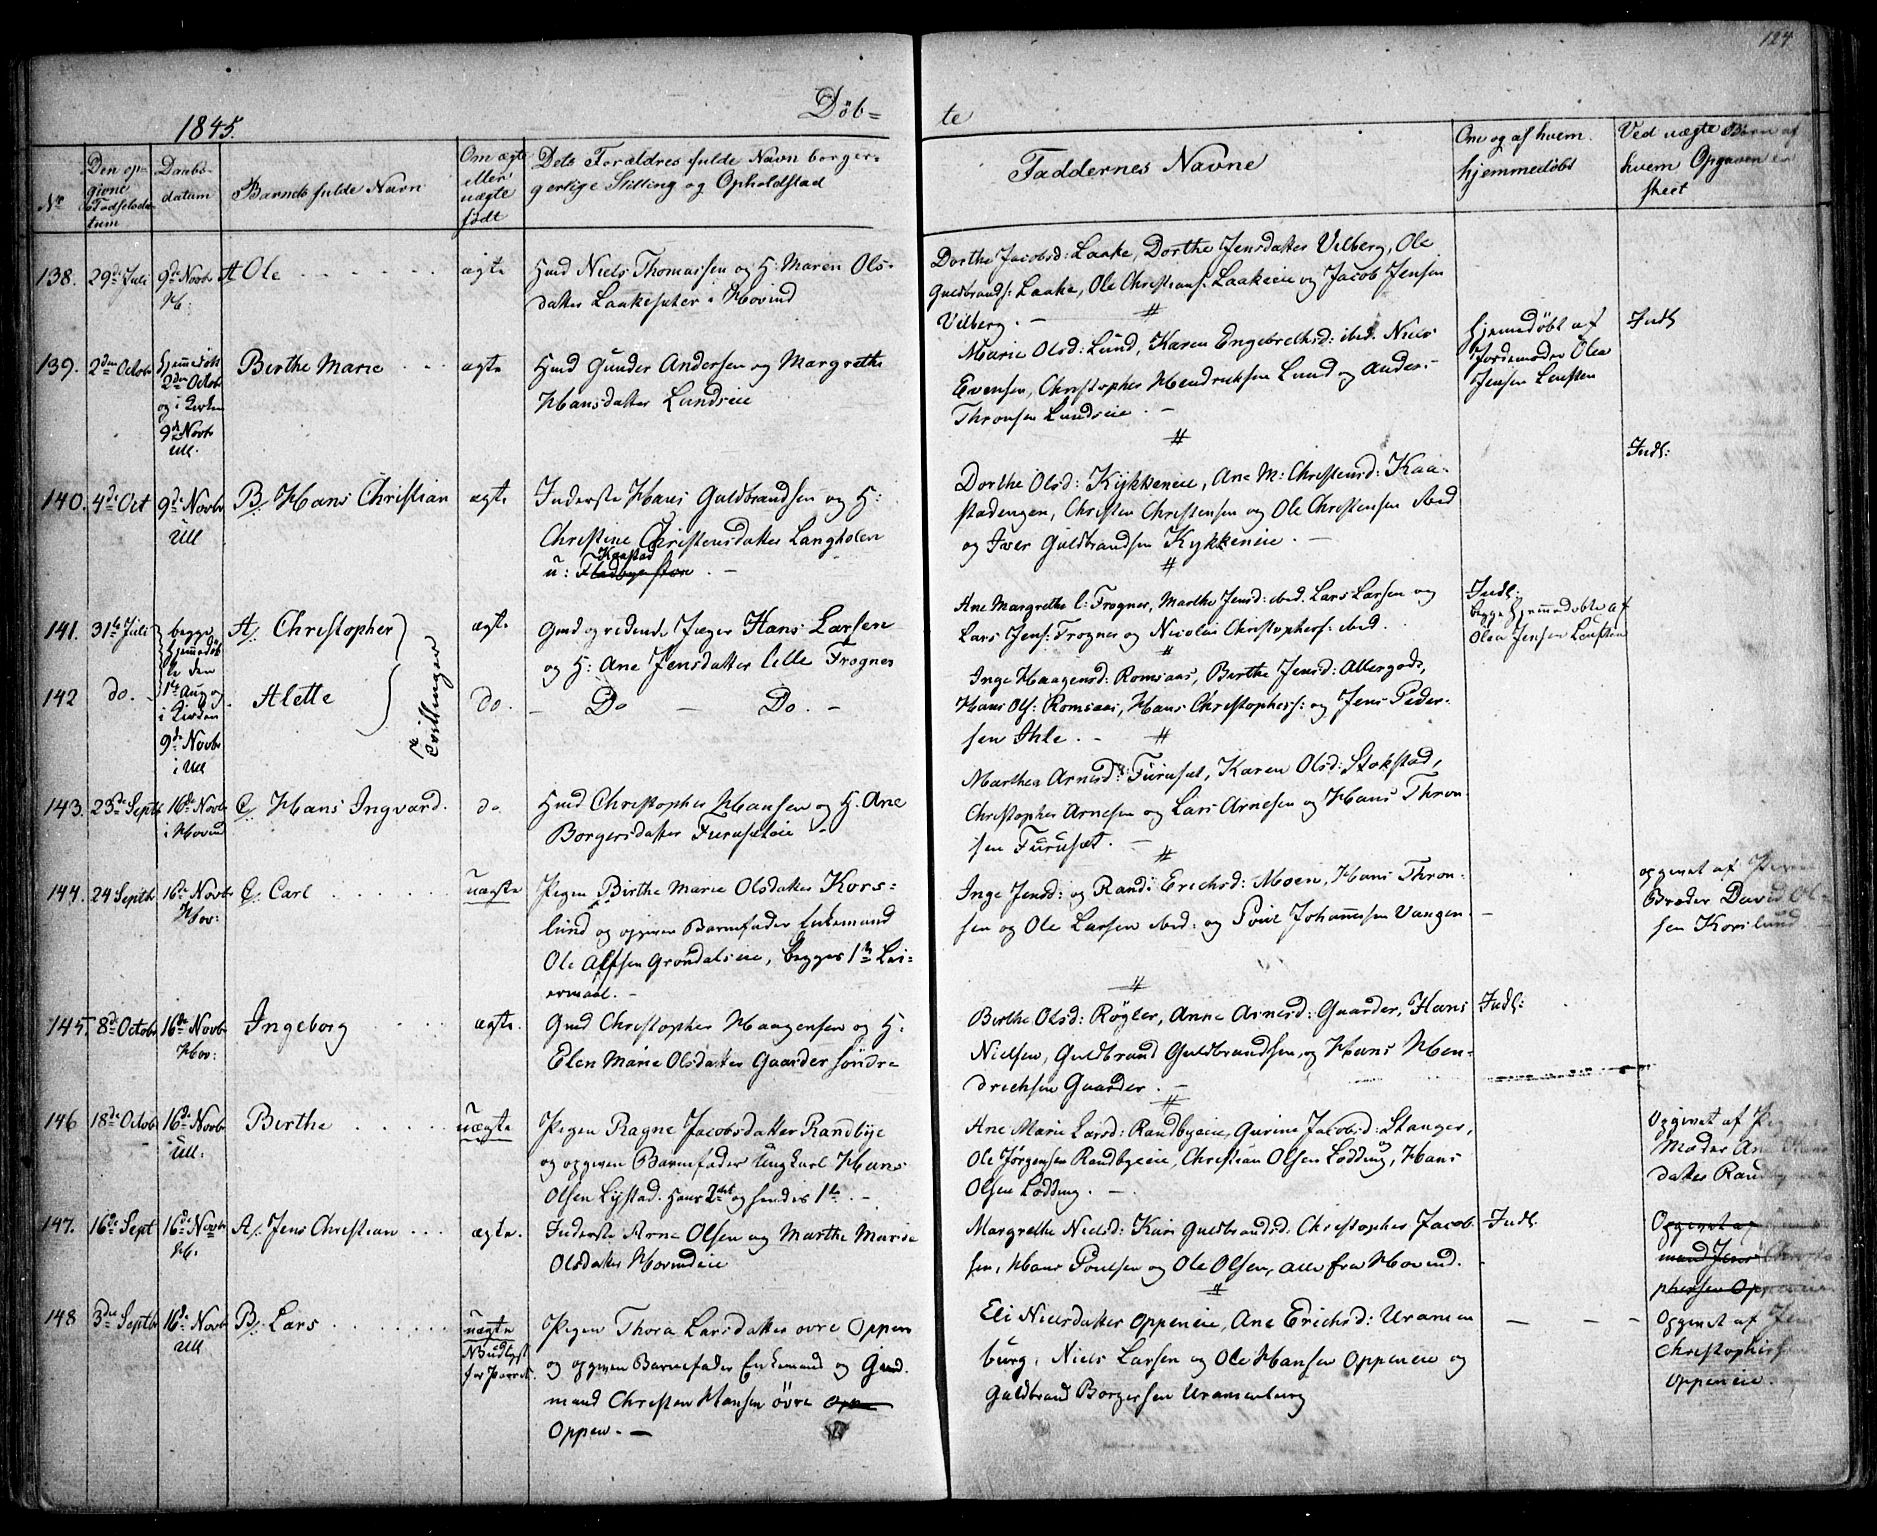 124
1845.
Døb=
te
No
Den op-
givne
Fødselsda-
tum
Daabs-
datum
Barnets fulde Navn
Om ægte
eller
uægte
født
Dets Forældres fulde Navn borger-
gerlige Stilling og Opholdstad
Faddernes Navne
Om og af hvem
hjemmedøbt
Ved uægte Børn af
hvem Opgaven er
skeet
138. 29de Juli 9de Novbr A Ole ægte Hmd Niels Thomassen og H: Maren Ols-
H: datter Laakesæter i Hovind
Dorthe Jacobsd: Laake, Dorthe Jensdatter Vilberg, Ole
Guldbrands: Laake, Ole Christians: Laakeeie og Jacob Jensen
Vilberg. —
139. 2den Octobr Hjemmedøbt
2den Octobr
og i Kirken
9de Novbr
Ull.
Birthe Marie ægte Hmd Gunder Andersen og Margrethe
Hansdatter Lundseie
Marie Olsd: Lund, Karen Engebrethsd: ibid. Niels
Evensen, Christopher Hendriksen Lund og Anders
Thronsen Lundseie. —
Hjemmedøbt af
Jordemoder Olea
Jensen Leufsten
Indl
140. 4de Oct 9de Novbr
Ull
B. Hans Christian ægte Inderste Hans Guldbrandsen og H:
Christine Christensdatter Langholen
Kaastad
u: Fladbye store. —
Dorthe Olsd: Kykkeneie, Ane M: Christensd: Kaa-
stadengen, Christen Christensen og Ole Christensen ibid
og Iver Guldbrandsen Kykkeneie. —
Indl:
141. 31te Juli begge
hjemmedøb
te den
1te Aug og
i Kirken
9de Novbr
i Ull
A. Christopher ægte Gmd og ridende Jæger Hans Larsen
og H: Ane Jensdatter lille Frogner
Tvillinger
Ane Margrethe l: Frogner, Marthe Jensd: ibid. Lars Larsen og
Lars Jens: Frogner og Nicolai Christophers: ibid.
Indl:
begge hjemmedøbte af
Olea Jensen Leufsten
142 do. Alette do. — Do — Do. —
Inge Haagensd: Romsaas, Birthe Jensd: Allergodt,
Hans Ols: Romsaas, Hans Christophers: og Jens Peder-
sen Ihle. —
143. 23de Septb 16de Novbr
i Hovind
C. Hans Ingvard. do. Hmd Christopher Hansen og H. Ane
Borgersdatter Furusæteie —
Marthea Arnesd: Furusæt, Karen Olsd: Stokstad,
Christopher Arnesen og Lars Arnesen og Hans Thron-
sen Furusæt. —
144. 24 Septb 16de Novbr
Hov:
C. Carl uægte Pigen Birthe Marie Olsdatter Kors-
lund og opgiven Barnefader Enkemand
Ole Alfsen Gröndalseie, begges 1te Lei-
ermaal. —
Inge Jensd: og Randi Erichsd: Moen, Hans Thron-
sen og Ole Larsen ibid: og Povel Johannessen Vangen.
—
opgivet af Pigens
Broder David Ol-
sen Korslund
145. 8de Octobr 16de Novbr
Hov:
Ingeborg ægte. Gmd Christopher Haagensen og H.
Elen Marie Olsdatter Gaarder søndre
Birthe Olsd: Røgler, Anne Arnesd: Gaarder, Hans
Nielsen, Guldbrand Guldbrandsen, og Hans Hen-
drichsen Gaarder. —
Indl:
146 18de Octob 16de Novbr
Ull:
Birthe uægte Pigen Ragne Jacobsdatter Randbye
og opgiven Barnefader Ungkarl Hans
Olsen Lystad. Hans 2det og hendes 1te. —
Ane Marie Larsd: Randbyeeie, Gurine Jacobsd: Stanger,
Ole Jørgensen Randbyeeie, Christian Olsen Lødding, Hans
Olsen Lødding. —
Opgivet af Pigens
Moder Ane
datter Randbye
147. 16de Sept 16de Novbr
H.
A. Jens Christian ægte. Inderste Arne Olsen og Marthe Marie
Olsdatter Hovindeie
Margrethe Nielsd: Kari Guldbrandsd. Christopher Jacob-
sen, Hans Poulsen og Ole Olsen, alle fra Hovind.
Indl.
Opgivet af
mand Jens Christo-
phersen Oppeneie
148 3die Septbr 16de Novbr
Ull
B. Lars uægte
NB udlyst
for
Pigen Thora Larsdatter øvre Oppen
og opgiven Barnefader Enkemand og Gaard-
mand Christen Hansen øvre Opn
Oppen. —
Eli Nielsdatter Oppeneie, Ane Erichsd: Uranien
burg, Niels Larsen og Ole Hansen Oppeneie og
Guldbrand Borgersen Uranienburg
— — —
Opgivet af Jens
Christophersen
Oppeneie.